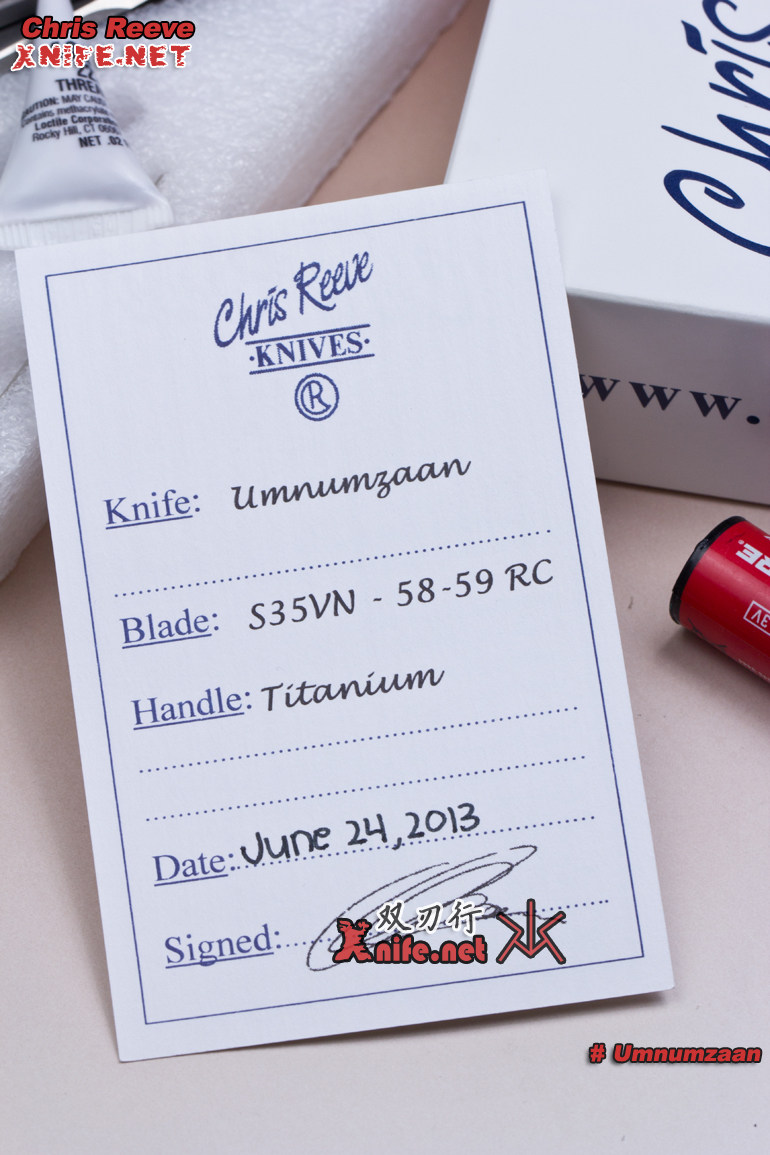 Chris Reeve
XNIFE.NET
THRE
CAUTION: MAY CAU
Contains methacryla
Loctite Corpora
Rocky Hill, CT 060
NET .02
Chris
www.
RE
3V
Chris Reeve
·KNIVES·
®
Knife: Umnumzaan
Blade: S35VN - 58-59 RC
Handle: Titanium
Date: June 24, 2013
Signed:
双刃行
Xnife.net
# Umnumzaan